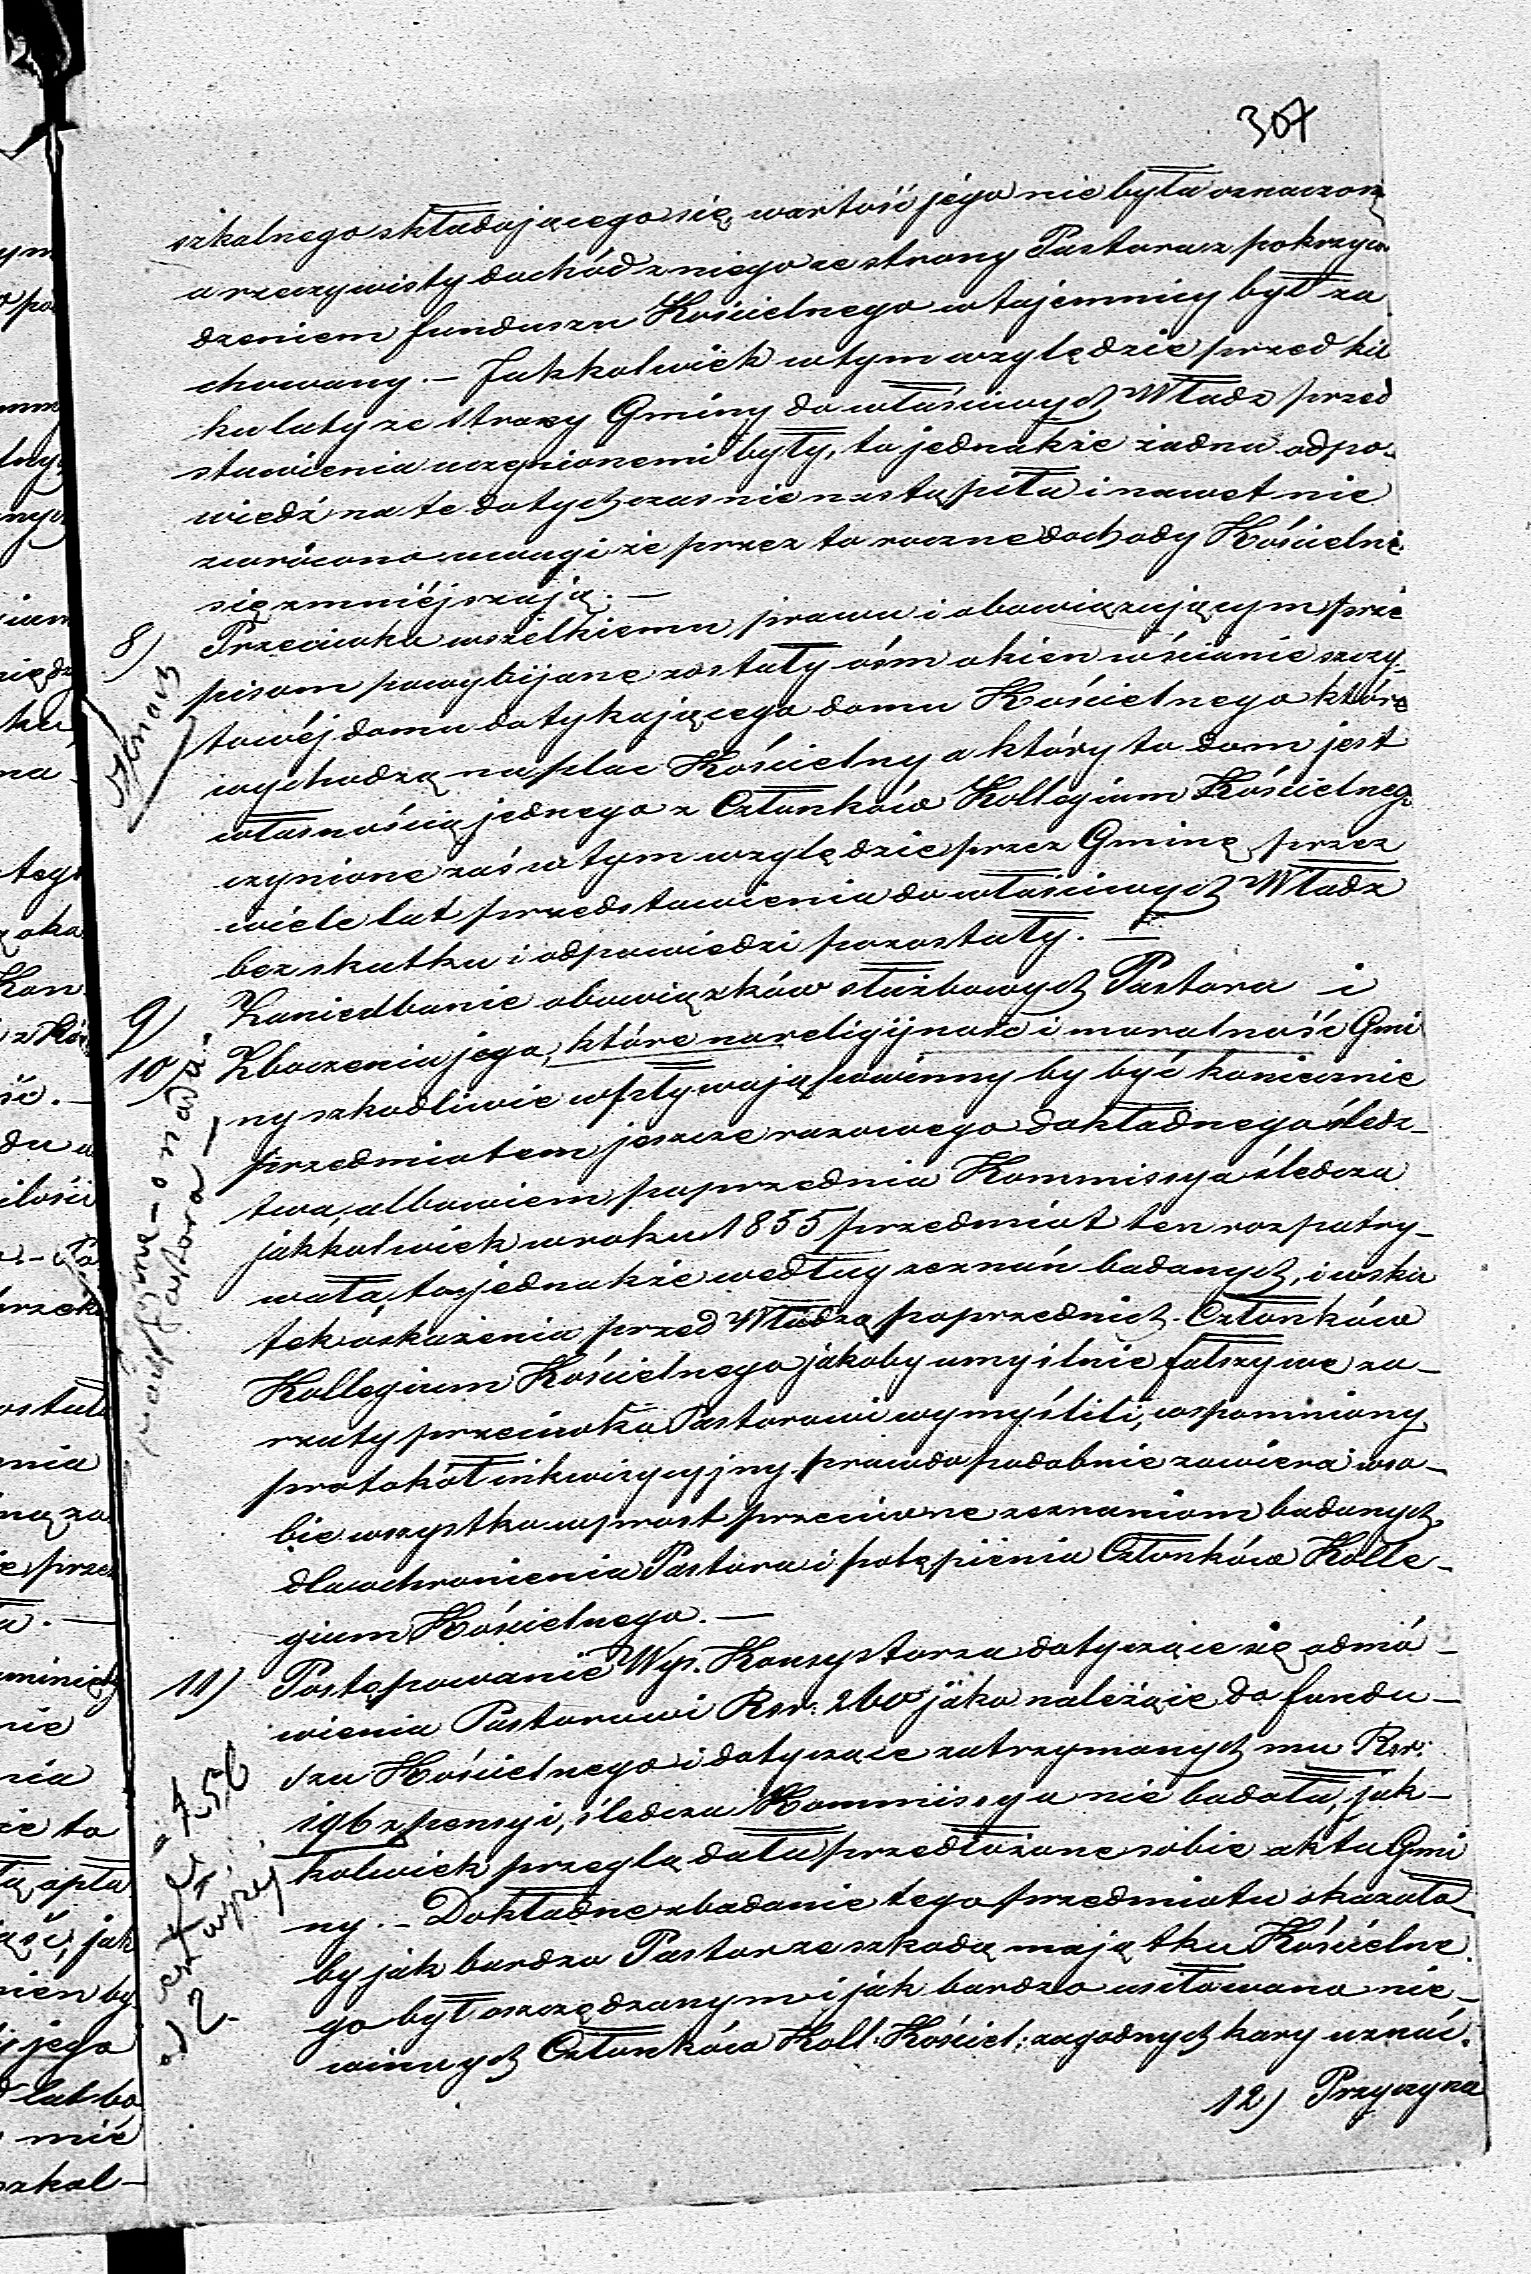 307
szkalnego składającego się, wartość jego nie była oznaczoną
a rzeczywisty dochód z niego ze strony Pastora z pokrzyw
dzeniem funduszu Kościelnego w tajemnicy był za
chowany. — Jakkolwiek w tym względzie przed kil
ku laty ze strony Gminy do właściwych Władz przed
stawienia uczynionemi były, to jednakże żadna odpo-
wiedź na te dotychczas nie nastąpiła i nawet nie
zwrócono uwagi że przez to roczne dochody Kościelne
się zmniéjszają. —
8) Przeciwko wszelkiemu prawu i obowiązującym prze
pisom powybijane zostały ośm okien w ścianie szczy-
towéj domu dotykającego domu Kościelnego które
wychodzą na plac Kościelny a który to dom jest
własnością jednego z Członków Kollegium Kościelnego
czynione zaś w tym względzie przez Gminę przez
wiele lat przedstawienia do właściwych Władz
bez skutku i odpowiedzi pozostały. —
9) Zaniedbanie obowiązków służbowych Pastora i
10) Zboczenia jego, które na religijność i moralność Gmi
ny szkodliwie wpływają powinny by być koniecznie
przedmiotem jeszcze razowego dokładnego śledz-
twa, albowiem poprzednia Kommissya śledcza
jakkolwiek w roku 1855 przedmiot ten rozpatry-
wała, to jednakże według zeznań badanych, i wsku
tek oskarżenia przed Władzą poprzednich Członków
Kollegium Kościelnego jakoby umyślnie fałszywe za-
rzuty przeciwko Pastorowi wymyślili, wspomniony
protokół inkwizycyjny prawdopodobnie zawiera w so-
bie wszystko wprost przeciwne zeznaniom badanych,
dla ochronienia Pastora i potępienia Członków Kolle-
gium Kościelnego. —
11) Postępowanie Wys. Konsystorza dotyczące się odmó-
wienia Pastorowi Rsr: 260 jako należące do fundu-
szu Kościelnego i dotyczące zatrzymanych mu Rsr:
196 z pensyi, śledcza Kommissya nie badała, jak-
kolwiek przeglądała przedłożone sobie akta Gmi
ny. — Dokładne zbadanie tego przedmiotu okazało
by jak bardzo Pastor ze szkodą majątku Kościelne
go był oszczędzanym i jak bardzo usiłowano nie-
winnych Członków Koll: Kościel: zagodnych kary uznać.
12) Przyczyna